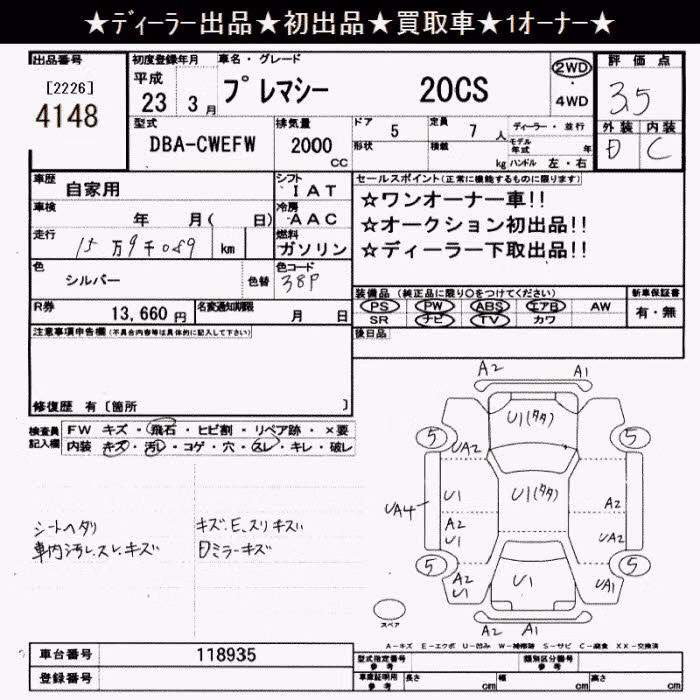 ★ディーラー出品★初出品★買取車★1オーナー★
出品番号
[2226]
4148
初度登録年月
平成
23 3月
車名・グレード
プレマシー 20CS
2WD
・
4WD
評価点
3.5
外装 内装
D C
型式
DBA-CWEFW
排気量
2000
CC
ドア 5
形状
定員 7 人
積載 kg
ディーラー・並行
モデル年式 年
ハンドル 左・右
車歴
自家用
シフト
IAT
車検
年 月( 日)
冷房
AAC
走行
15万9千089 km
燃料
ガソリン
色
シルバー
色替
色コード
38P
R券
13,660円
名変通知期限
月 日
セールスポイント(正常に機能するものに限ります)
☆ワンオーナー車!!
☆オークション初出品!!
☆ディーラー下取出品!!
装備品 (純正品に限り○をつけてください)
PS PW ABS エアB AW
SR ナビ TV カワ
新車保証書
有・無
後日品
注意事項申告欄(不具合内容等は具体的に記入して下さい)
修復歴 有〔箇所 〕
検査員
記入欄
FW キズ・飛石・ヒビ割・リペア跡・×要
内装 キズ・汚レ・コゲ・穴・スレ・キレ・破レ
シートヘタリ
車内汚レ.スレ.キズ
キズ.E.スリキズ
Dミラーキズ
A2 A1
U1(タタ)
5 5
UA2
U1 U1(タタ)
UA4 A2 A2
U1 UA2
5 5
A2 U1 UA1
U1
スペア
A2 A1
A-キズ E-エクボ U-凹み W-補修跡 S-サビ C-腐食 XX-交換済
車台番号 118935
登録番号
型式指定番号
参考
類別区分番号
参考
車庫証明用
参考
長さ cm 幅 cm 高さ cm